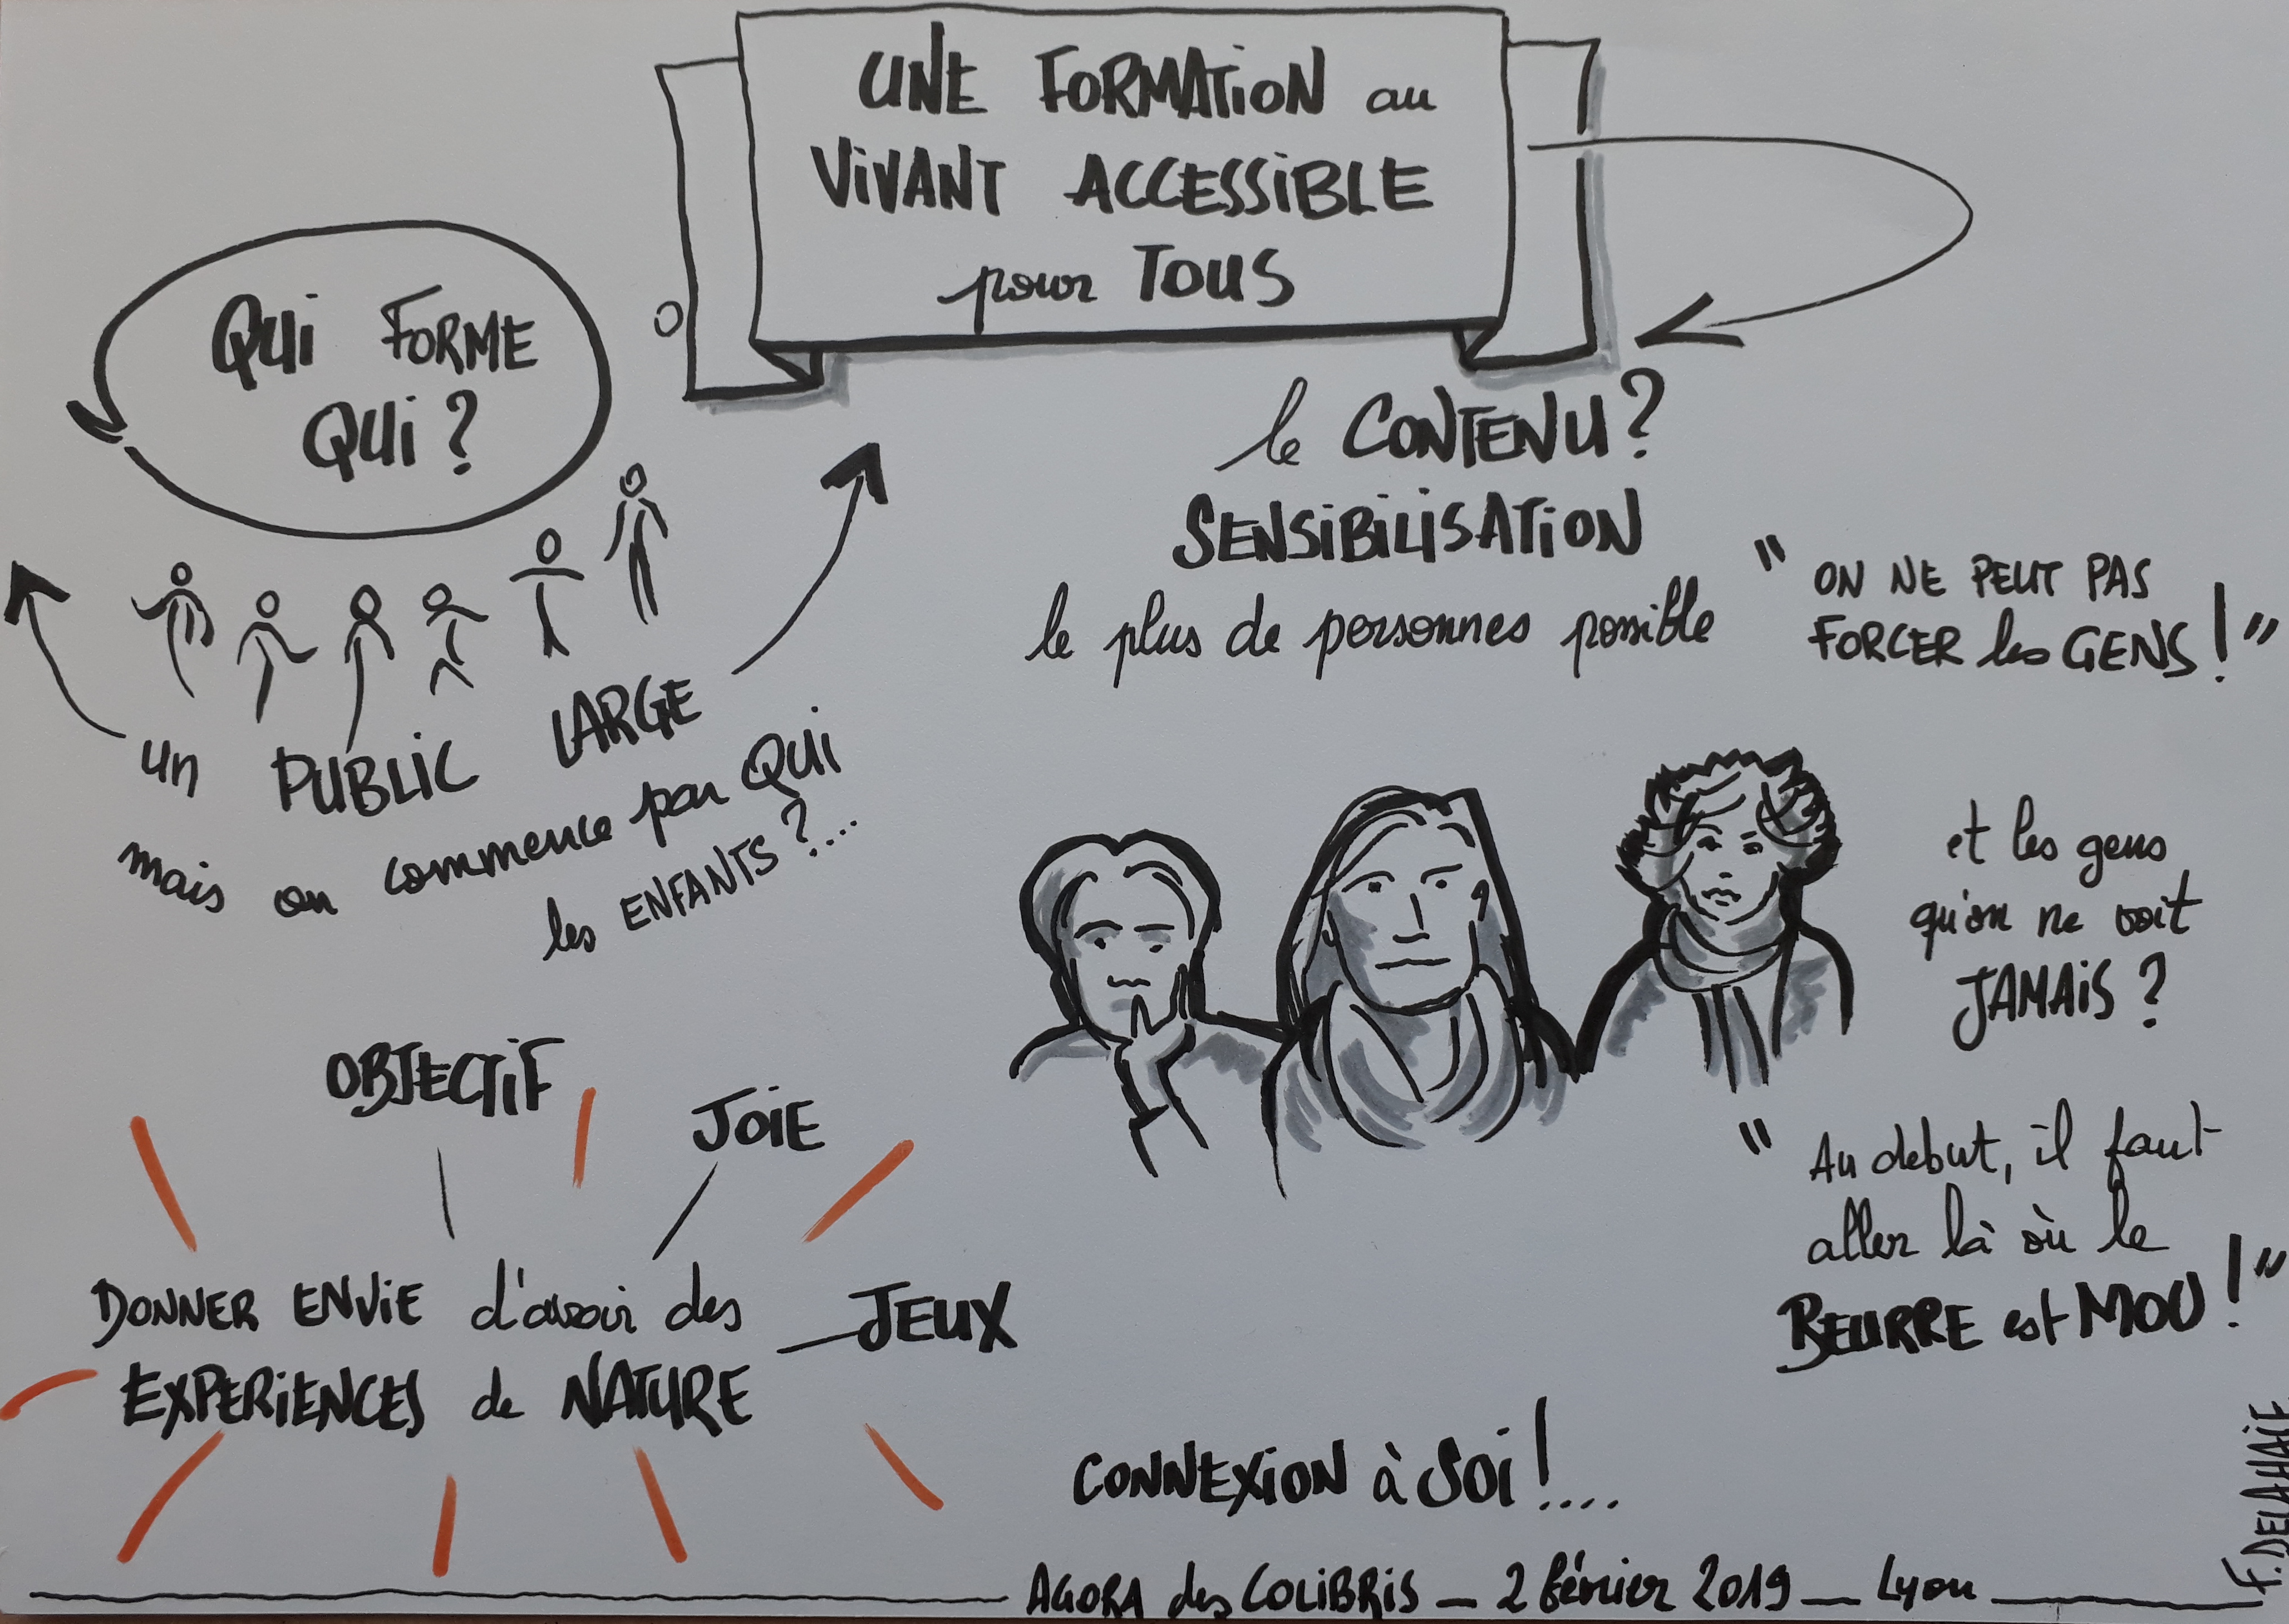 UNE FORMATION au
VIVANT ACCESSIBLE
pour TOUS
QUI FORME
QUI ?
un PUBLIC LARGE
mais on commence par QUI
les ENFANTS ?...
le CONTENU ?
SENSIBILISATION
le plus de personnes possible
" ON NE PEUT PAS
FORCER les GENS ! "
et les gens
qu'on ne voit
JAMAIS ?
" Au debut, il faut
aller là où le
BEURRE est MOU ! "
OBJECTIF
JOIE
DONNER ENVIE d'avoir des
EXPERIENCES de NATURE
JEUX
CONNEXION à SOI !....
AGORA des COLIBRIS _ 2 février 2019 _ Lyon
F. DELAHAIE